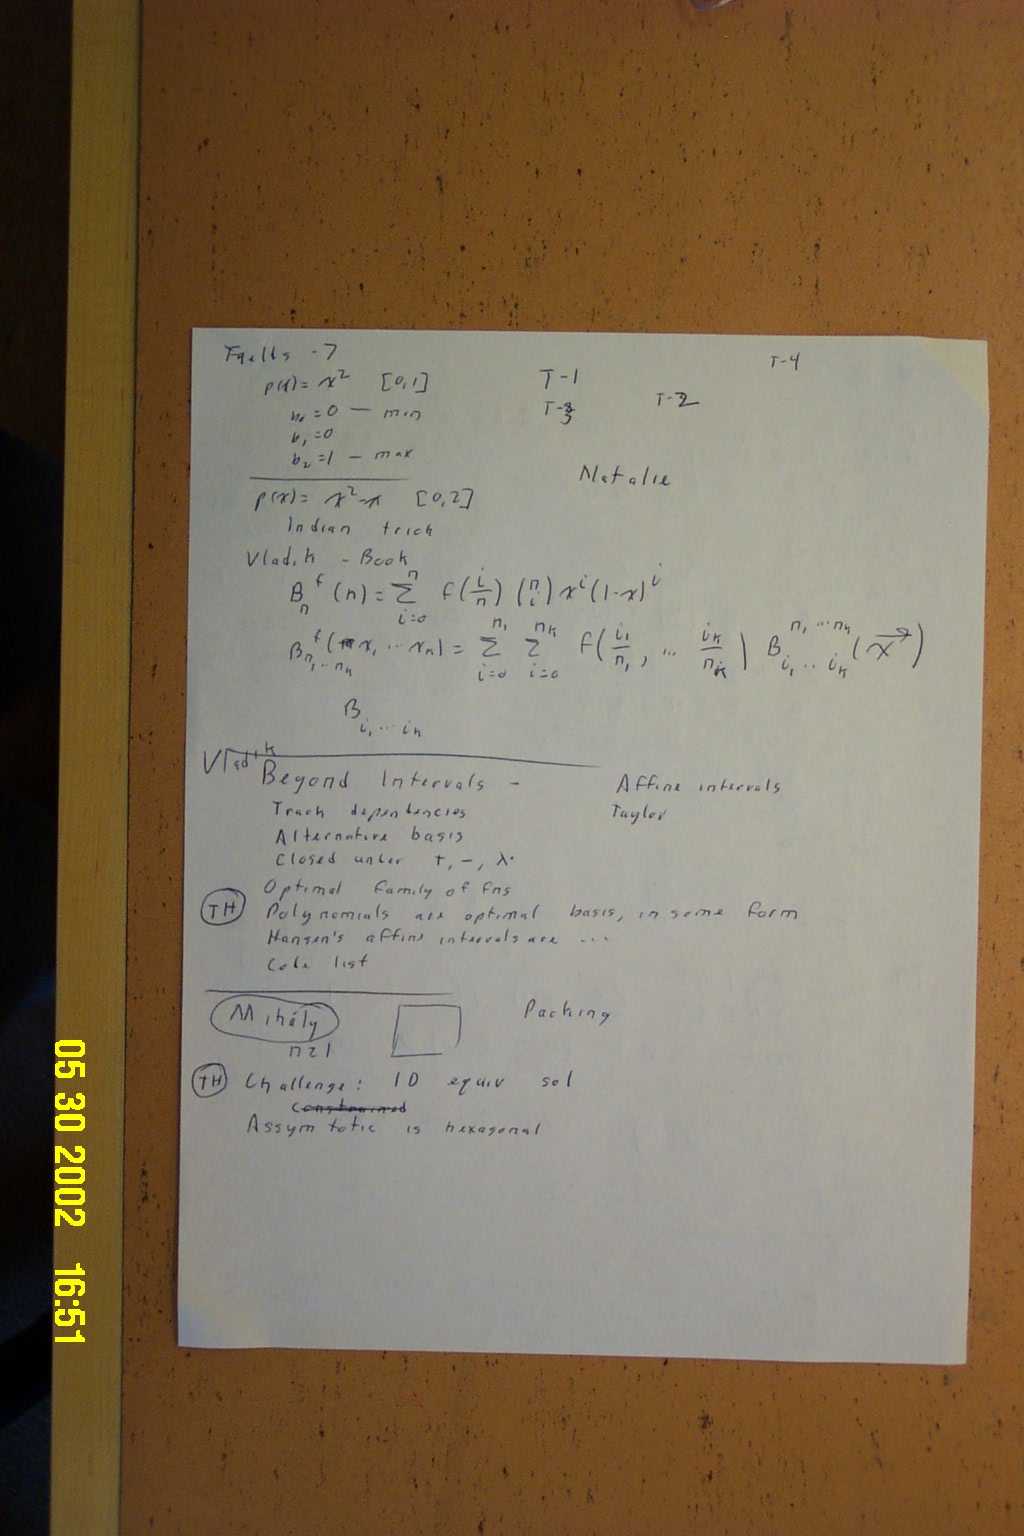 -7
T-4
p(x)= x² [0,1]
T-1
b₀=0 — min
T-3
T-2
b₁=0
b₂=1 — max
Natalie
p(x)= x²-x [0,2]
Indian trick
Vladik - Book
Bₙᶠ(n) = Σⁿᵢ₌₀ f(i/n) (n i) xⁱ(1-x)ⁱ
Bᶠn₁...nₖ(x₁...xₙ) = Σⁿ¹ᵢ₌₀ Σⁿᵏᵢ₌₀ f(i₁/n₁, ... iₖ/nₖ) Bⁿ¹···ⁿᵏi₁...iₖ(x⃗)
B i₁...iₖ
Vladik
Beyond Intervals -
Affine intervals
Track dependencies
Taylor
Alternative basis
Closed under +, -, λ·
Optimal family of fns
TH Polynomials are optimal basis, in some form
Hansen's affine intervals are ...
Code list
Mihály
Packing
n≥1
TH Challenge: 1D equiv sol
Constrained
Assymtotic is hexagonal
05 30 2002 16:51